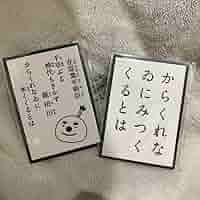 からくれな
ゐにみつく
くるとは
在原業平朝臣
神代もきかず
龍田川
からくれなゐに
水くくるとは